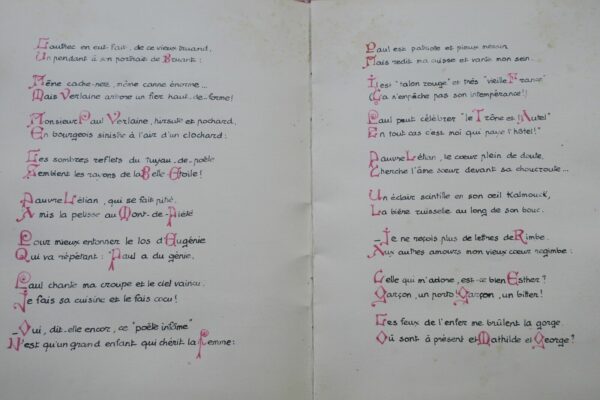 Lautrec en eut fait, de ce vieux truand,
Un pendant à son portrait de Bruant:
Même cache-nez, même canne énorme...
Mais Verlaine arbore un fier haut-de-forme!
Monsieur Paul Verlaine, hirsute et pochard,
En bourgeois sinistre à l'air d'un clochard:
Les sombres reflets du tuyau-de-poêle
Semblent les rayons de la Belle Etoile!
Pauvre Lélian, qui se fait pitié
A mis la pelisse au Mont-de-Piété
Pour mieux entonner le los d'Eugénie
Qui va répétant: "Paul a du génie,
Paul chante ma croupe et le ciel vainqu.
Je fais sa cuisine et le fais cocu!
_Oui, dit-elle encor, ce "poète infâme"
N'est qu'un grand enfant qui chérit la femme:
Paul est patriote et pieux
Mais redit ma cuisse et vante mon sein...
Il est "talon rouge" et très "vieille France"
(Ça n'empêche pas son intempérance!)
Paul peut célébrer "le Trône et l'Autel"
En tout cas c'est moi qui paye l'hôtel!"
Pauvre Lélian, le cœur plein de doute,
Cherche l'âme sœur devant sa choucroute...
Un éclair scintille en son œil Kalmouck,
La bière ruisselle au long de son bouc.
_Je ne reçois plus de lettres de Rimbe.
Aux autres amours mon vieux cœur regimbe:
Celle qui m'adore, est-ce bien Esther?
Garçon, un porto! Garçon, un bitter!
Les feux de l'enfer me brûlent la gorge,
Où sont à présent et Mathilde et George?